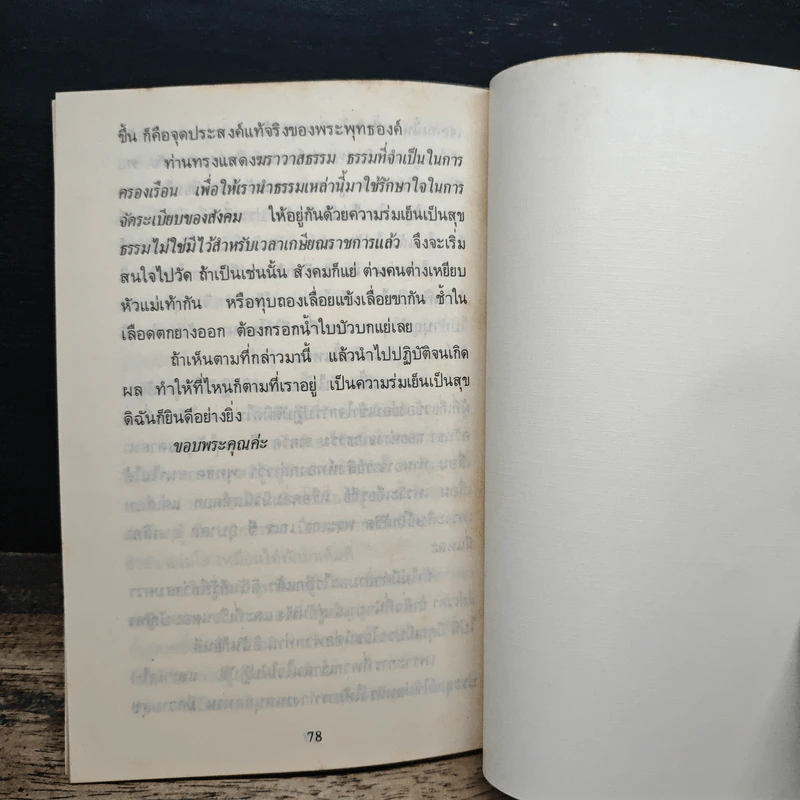 ขึ้น ก็คือจุดประสงค์แท้จริงของพระพุทธองค์
ท่านทรงแสดงฆราวาสธรรม ธรรมที่จำเป็นในการ
ครองเรือน เพื่อให้เรานำธรรมเหล่านี้มาใช้รักษาใจในการ
จัดระเบียบของสังคม ให้อยู่กันด้วยความร่มเย็นเป็นสุข
ธรรมไม่ใช่มีไว้สำหรับเวลาเกษียณราชการแล้ว จึงจะเริ่ม
สนใจไปวัด ถ้าเป็นเช่นนั้น สังคมก็แย่ ต่างคนต่างเหยียบ
หัวแม่เท้ากัน หรือทุบถองเลื่อยแข้งเลื่อยขากัน ช้ำใน
เลือดตกยางออก ต้องกรอกน้ำใบบัวบกแย่เลย
ถ้าเห็นตามที่กล่าวมานี้ แล้วนำไปปฏิบัติจนเกิด
ผล ทำให้ที่ไหนก็ตามที่เราอยู่ เป็นความร่มเย็นเป็นสุข
ดิฉันก็ยินดีอย่างยิ่ง
ขอบพระคุณค่ะ
78